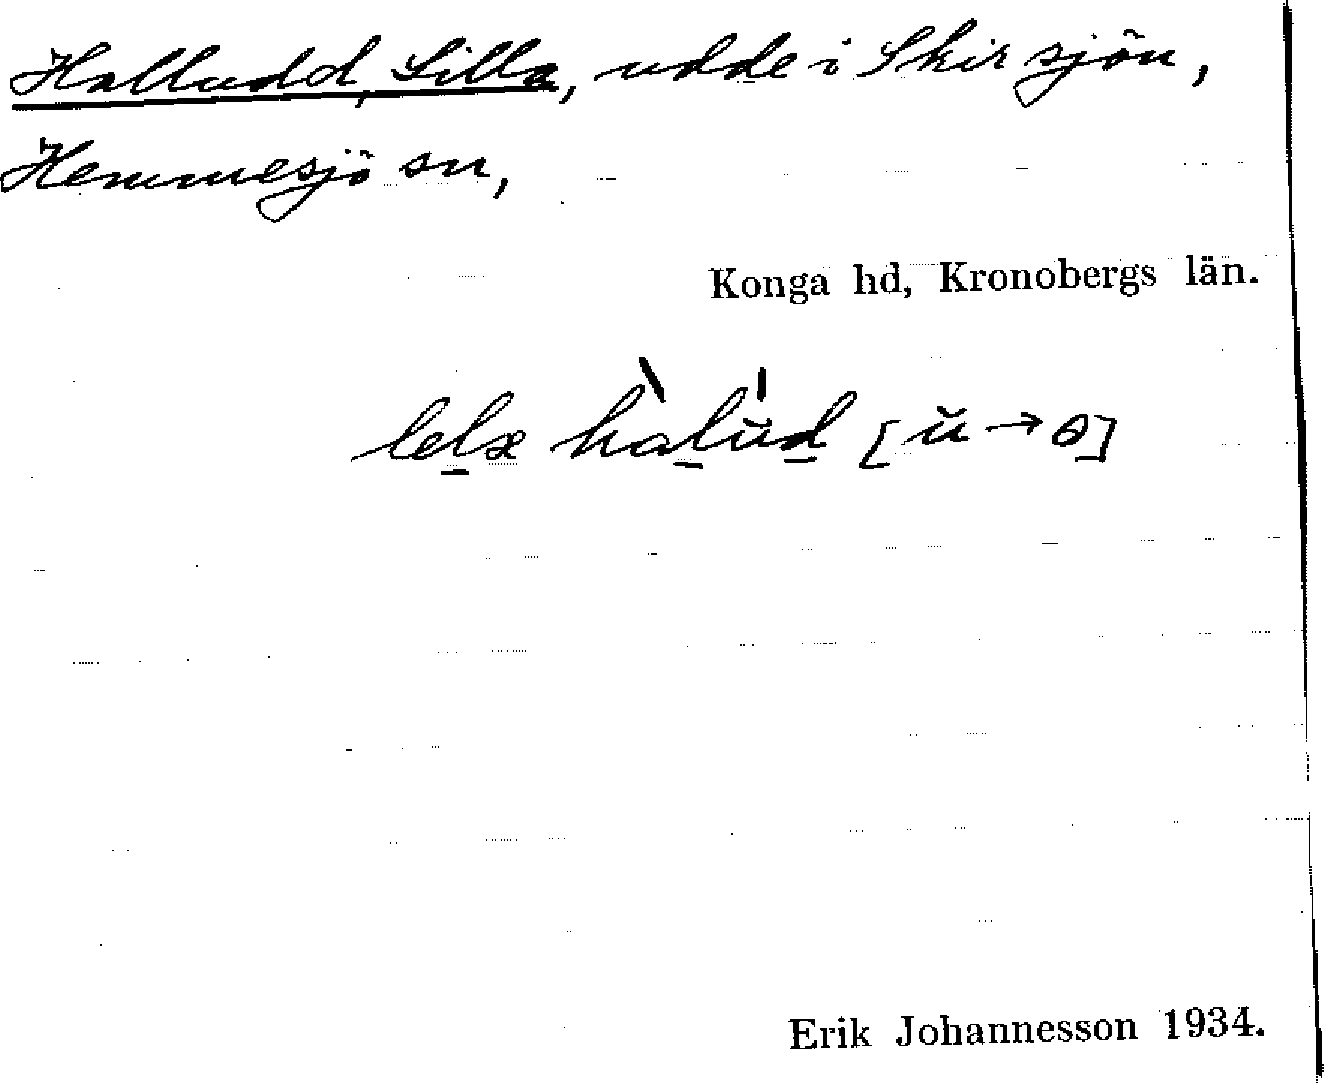 Halludd, Lilla, udde i Skirsjön,
Hemmesjö sn,
Konga hd, Kronobergs län.
lel̠æ hàl̠ŭ́d̠ [ŭ → ɵ]
Erik Johannesson 1934.